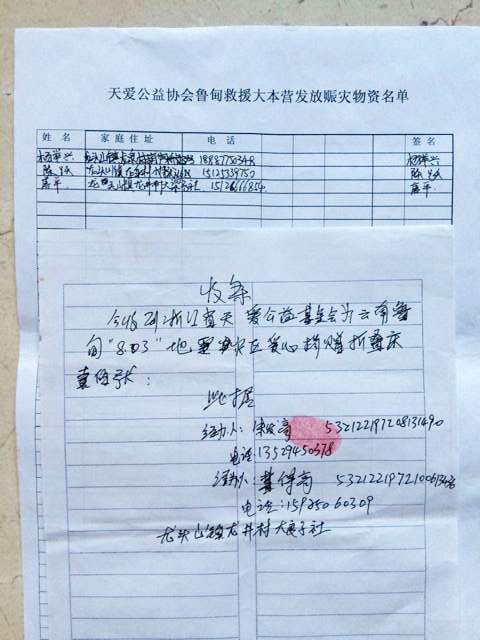 天爱公益协会鲁甸救援大本营发放赈灾物资名单
姓名 家庭住址 电话 签名
杨举兴 龙头山镇 18887750348 杨举兴
陈 龙头山镇 15125339750 陈
富平 龙头山镇龙井村 社 富平
收条
今收到浙江省天爱公益基金会为云南鲁
甸"8.03"地震灾区爱心捐赠折叠床
壹佰张:
此据
经办人: 532122197208131490
电话:13529450378
经办人: 龚保高
电话:15925060309
龙头山镇龙井村大 子社